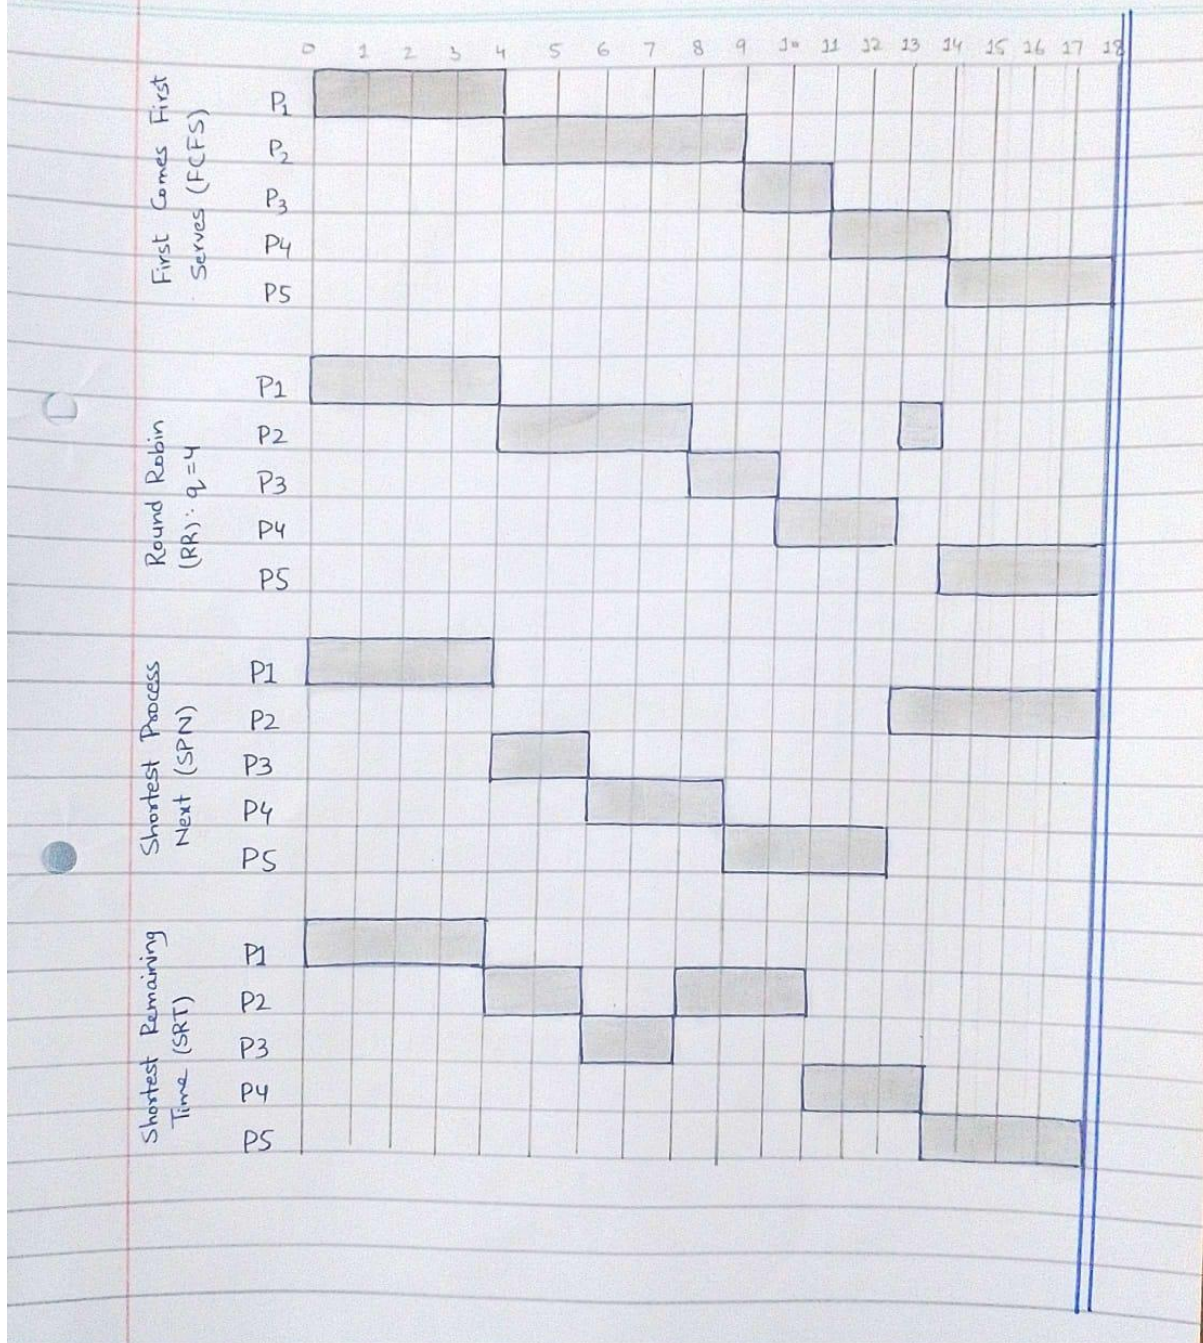 0 1 2 3 4 5 6 7 8 9 10 11 12 13 14 15 16 17 18
First Comes First
Serves (FCFS)
P1
P2
P3
P4
P5
Round Robin
(RR): q=4
P1
P2
P3
P4
P5
Shortest Process
Next (SPN)
P1
P2
P3
P4
P5
Shortest Remaining
Time (SRT)
P1
P2
P3
P4
P5